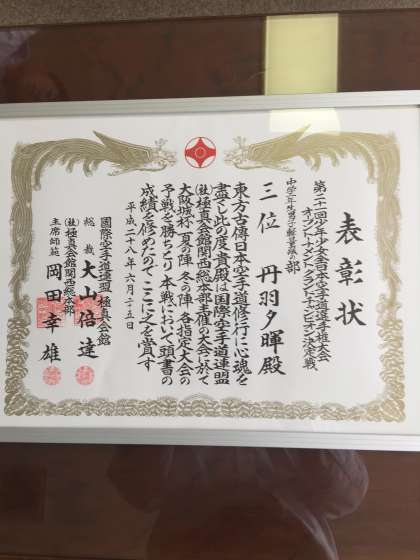 表彰状
第二十一回少年少女全日本空手道選手権大会
オープントーナメントグランドチャンピオン決定戦
中学一年生男子軽量級の部
三位 丹羽夕暉殿
東方古傳日本空手道修行に心魂を
盡くし此の度貴殿は国際空手道連盟
(社)極真会館関西総本部主催の大会に於て
大阪城杯 夏の陣 冬の陣 各指定大会の
予戦を勝ちとり 本戦において頭書の
成績を修めたので ここに之を賞す
平成二十八年六月二十五日
國際空手道連盟 極真会館
総裁 大山倍達
(社)極真会館関西総本部
主席師範 岡田幸雄